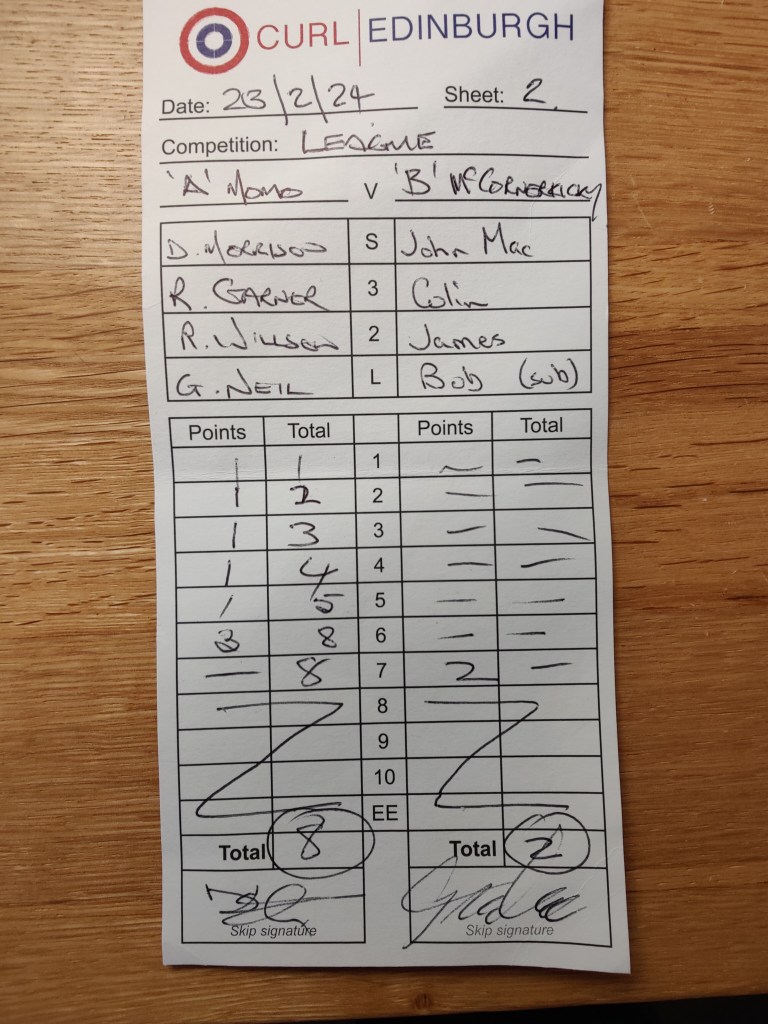 CURL | EDINBURGH
Date: 23/2/24 Sheet: 2
Competition: LEAGUE
'A' MOMO V 'B' McCORNERKICK
D. MORRISON S John Mac
R. GARNER 3 Colin
R. WILLSON 2 James
G. NEIL L Bob (sub)
Points Total Points Total
1 1 1 — —
1 2 2 — —
1 3 3 — —
1 4 4 — —
1 5 5 — —
3 8 6 — —
— 8 7 2 —
8
9
10
EE
Total 8 Total 2
Skip signature Skip signature